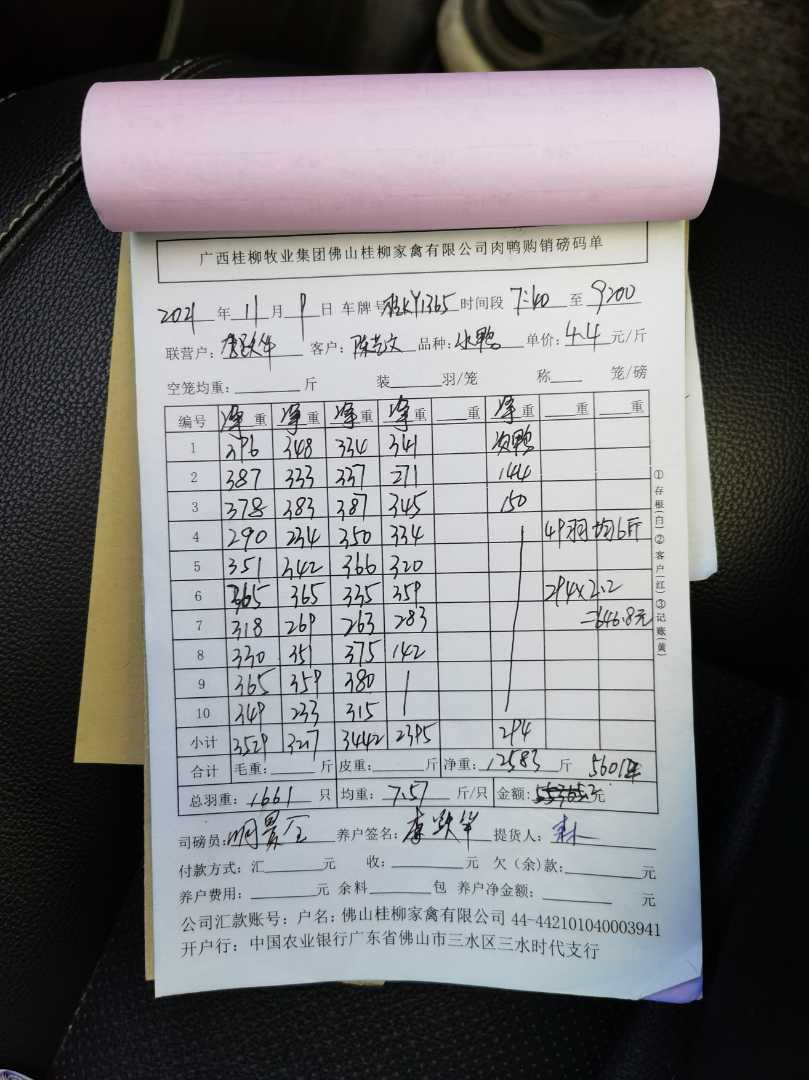 广西桂柳牧业集团佛山桂柳家禽有限公司肉鸭购销磅码单
2021 年 11 月 9 日 车牌号 1365 时间段 7:40 至 9200
联营户: 客户: 陈艺文 品种: 水鸭 单价: 4.4 元/斤
空笼均重: 斤 装 羽/笼 称 笼/磅
编号 净重 净重 净重 净重 重 净重 重 重
1 396 348 334 341 次鸭
2 387 333 337 271 144
3 378 383 387 345 150
4 290 234 350 334 49羽 均6斤
5 351 342 366 320
6 365 365 335 359 294×2.2
7 318 269 263 283 =646.8元
8 330 351 375 142
9 365 359 380
10 349 233 315
小计 3529 3217 3442 2395 294
合计 毛重: 斤 皮重: 斤 净重: 12583 斤 56012
总羽重: 1661 只 均重: 7.57 斤/只 金额: 元
司磅员: 养户签名: 提货人:
付款方式: 汇 元 收: 元 欠(余)款: 元
养户费用: 元 余料 包 养户净金额: 元
公司汇款账号: 户名: 佛山桂柳家禽有限公司 44-442101040003941
开户行: 中国农业银行广东省佛山市三水区三水时代支行
①存根(白)②客户(红)③记账(黄)